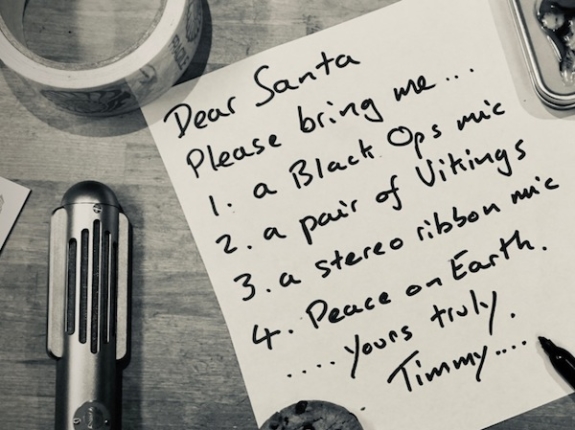 Dear Santa
Please bring me...
1. a Black Ops mic
2. a pair of Vikings
3. a stereo ribbon mic
4. Peace on Earth.
....yours truly.
Timmy....